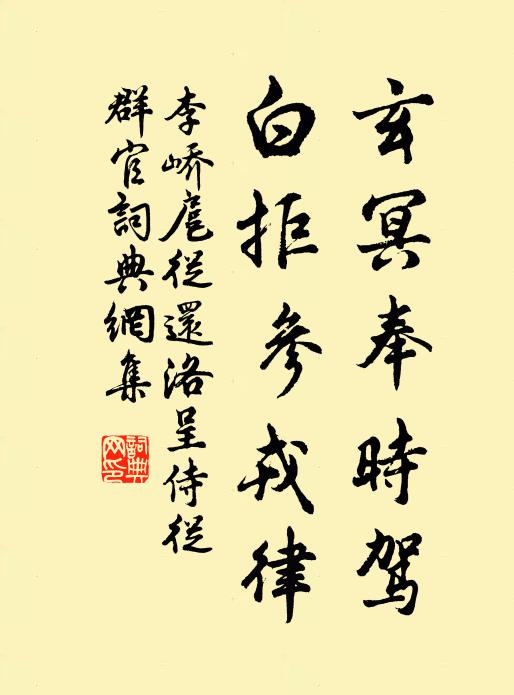 玄冥奉時駕
白拒參戎律
李嶠扈從還洛呈侍從
群官詞典網集
詞典網印